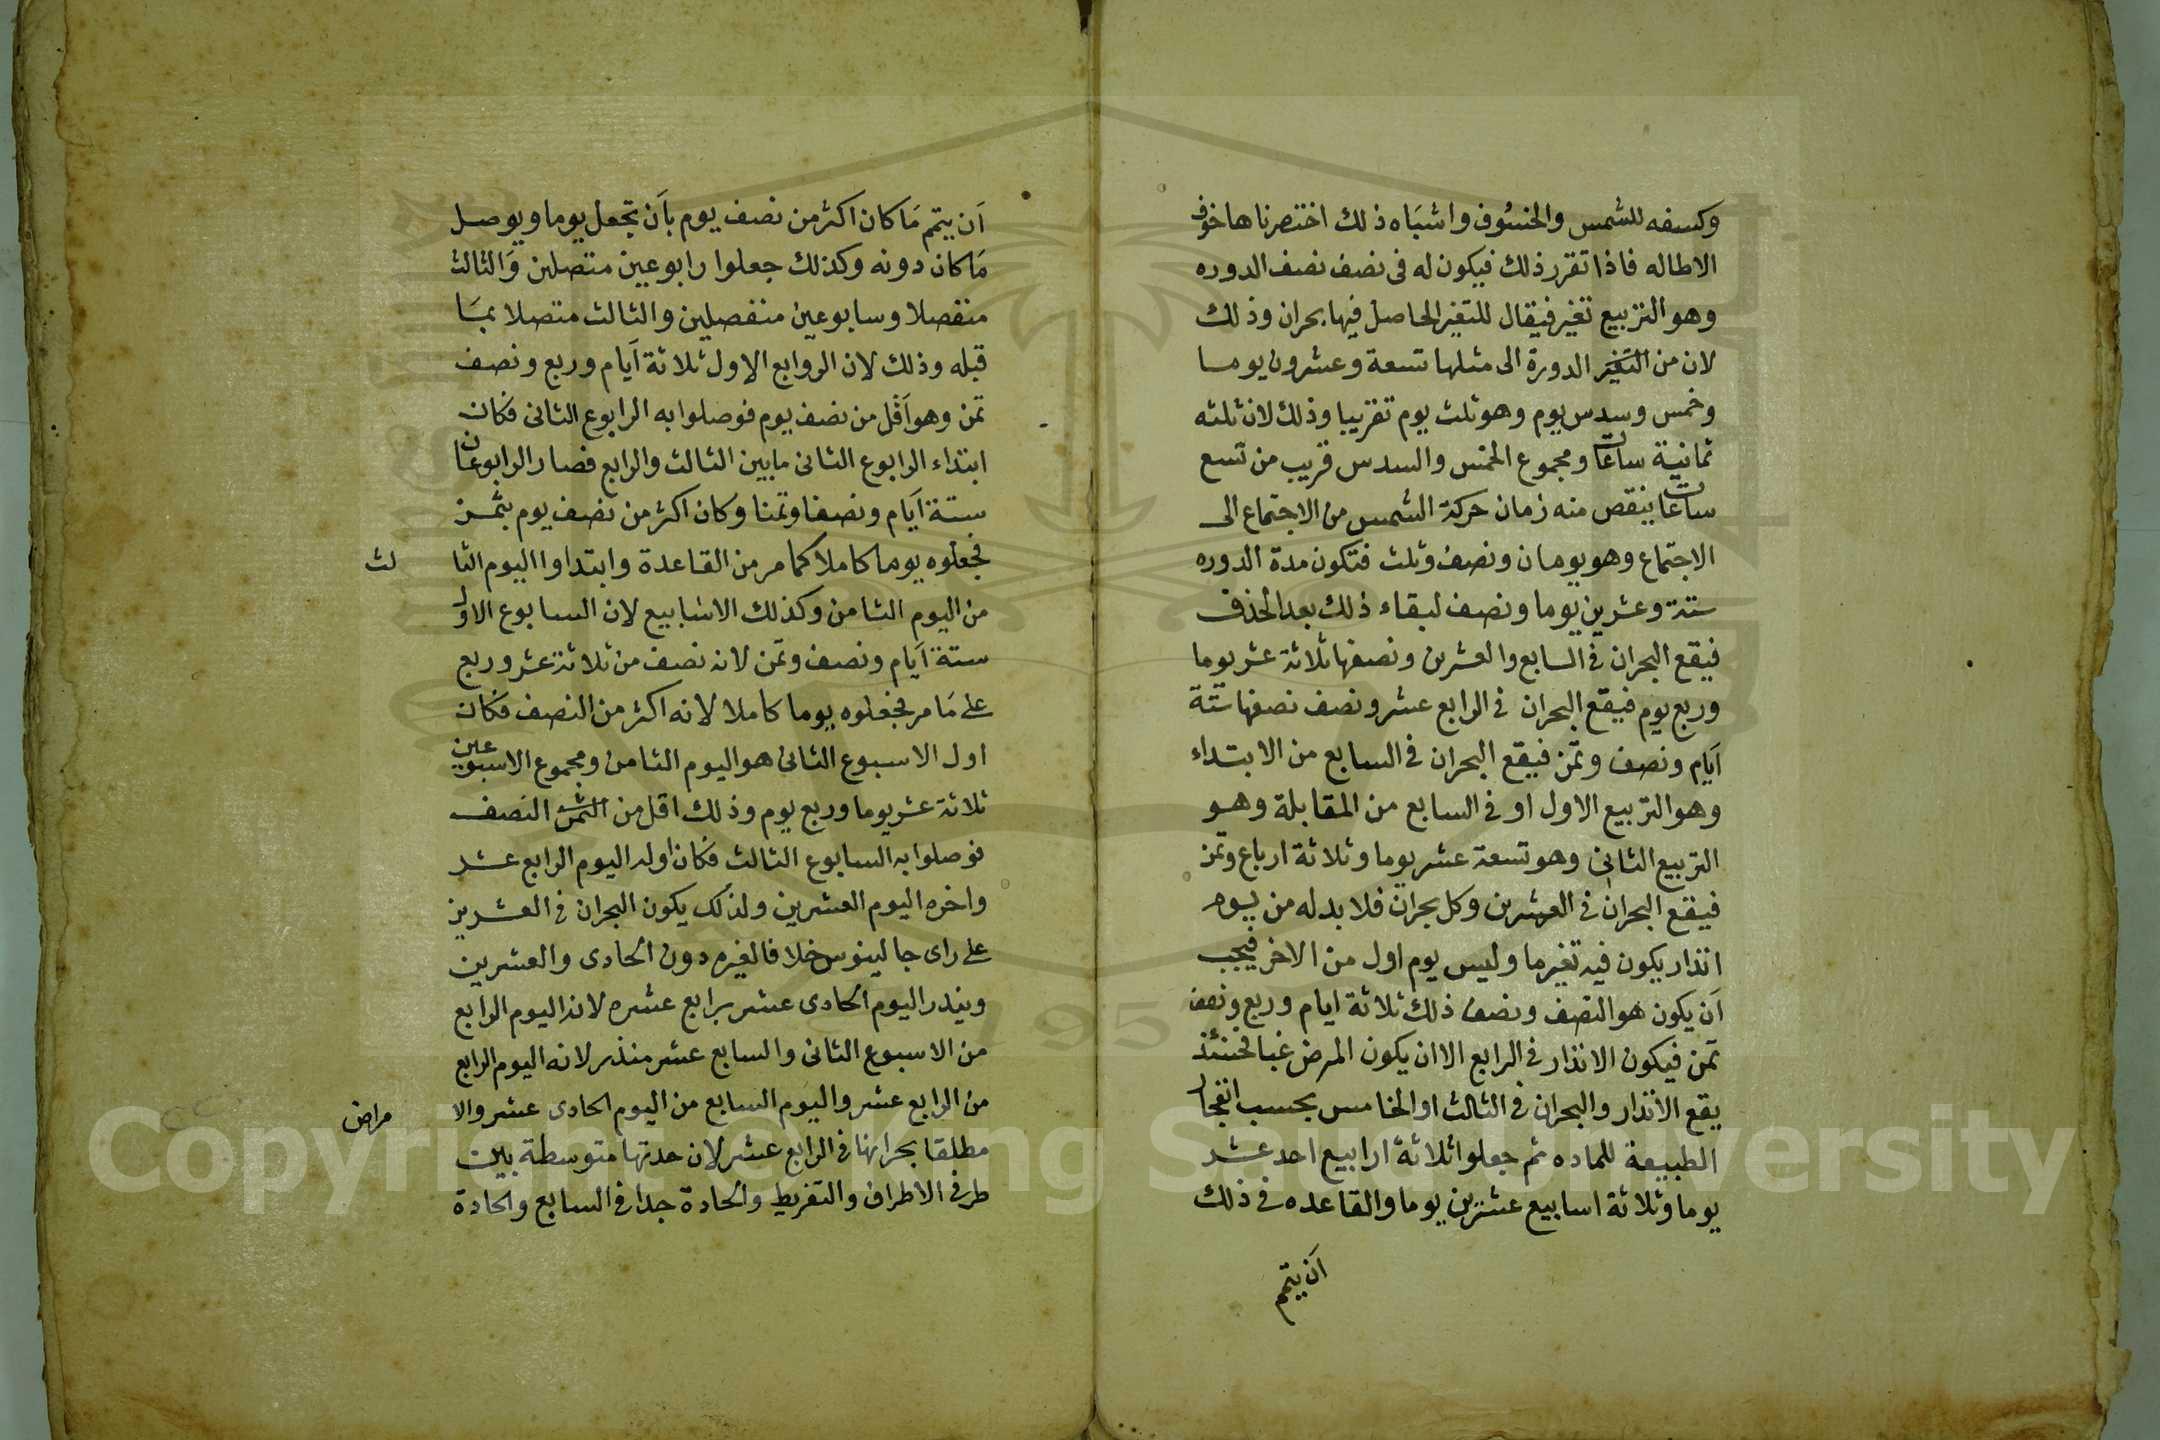 وكسفه للشمس والخسوف واشباه ذلك اختصرناها خوف
الاطاله فاذا تقرر ذلك فيكون له فى نصف نصف الدوره
وهو التربيع تغير فيقال للتغير الحاصل فيها بحران وذلك
لان من التغير الدورة الى مثلها تسعة وعشرون يوما
وخمس وسدس يوم وهو ثلث يوم تقريبا وذلك لان ثلثه
ثمانية ساعات ومجموع الخمس والسدس قريب من تسع
ساعات ينقص منه زمان حركة الشمس من الاجتماع الى
الاجتماع وهو يومان ونصف وثلث فتكون مدة الدوره
ستة وعشرين يوما ونصف لبقاء ذلك بعد الحذف
فيقع البحران فى السابع والعشرين ونصفها ثلاثة عشر يوما
وربع يوم فيقع البحران فى الرابع عشر ونصف نصفها ستة
أيام ونصف وثمن فيقع البحران فى السابع من الابتداء
وهو التربيع الاول او فى السابع من المقابلة وهو
التربيع الثانى وهو تسعة عشر يوما وثلاثة ارباع وثمن
فيقع البحران فى العشرين وكل بحران فلا بد له من يوم
انذار يكون فيه تغير ما وليس يوم اول من الاخر فيجب
أن يكون هو النصف ونصف ذلك ثلاثة ايام وربع ونصف
ثمن فيكون الانذار فى الرابع الا ان يكون المرض غبا فحينئذ
يقع الأنذار والبحران فى الثالث او الخامس بحسب انفجار
الطبيعة للماده ثم جعلوا ثلاثة ارابيع احد عشر
يوما وثلاثة اسابيع عشرين يوما والقاعده فى ذلك
أن يتمم
أن يتمم مَا كان اكثر من نصف يوم بأن تجعل يوما ويوصل
مَا كان دونه وكذلك جعلوا رابوعين متصلين وَالثالث
منفصلا وسابوعين منفصلين والثالث متصلا بمَا
قبله وذلك لان الروابع الاول ثلاثة أيام وربع ونصف
ثمن وهو أقل من نصف يوم فوصلوا به الرابوع الثانى فكان
ابتداء الرابوع الثانى ما بين الثالث والرابع فصار الرابوعان
ستة أيام ونصفا وثمنا وكان اكثر من نصف يوم بثمن
فجعلوه يوما كاملا كما مر من القاعدة وابتداوا اليوم الثا
لث
من اليوم الثامن وكذلك الاسابيع لان السابوع الاول
ستة أيام ونصف وثمن لانه نصف من ثلاثة عشر وربع
على مَا مر فجعلوه يوما كاملا لانه اكثر من النصف فكان
اول الاسبوع الثانى هو اليوم الثامن ومجموع الاسبوعين
ثلاثة عشر يوما وربع يوم وذلك اقل من الثمن النصف
فوصلوا به السابوع الثالث فكان اوله اليوم الرابع عشر
واخره اليوم العشرين ولذلك يكون البحران فى العشرين
على راى جالينوس خلافا لغيره دون الحادى والعشرين
وينذر اليوم الحادى عشر برابع عشره لانه اليوم الرابع
من الاسبوع الثانى والسابع عشر منذر لانه اليوم الرابع
من الرابع عشر واليوم السابع من اليوم الحادى عشر والا
مراض
مطلقا بحرانها فى الرابع عشر لان حدتها متوسطة بين
طرفى الاطراف والتفريط والحادة جدا فى السابع والحادة
Copyright © King Saud University